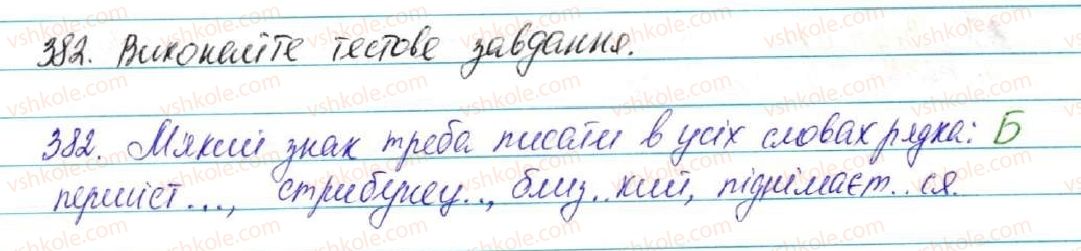 382. Виконайте тестове завдання.
382. М'який знак треба писати в усіх словах рядка: Б
першіст..., стрибунец.., близ..кий, піднімает..ся.